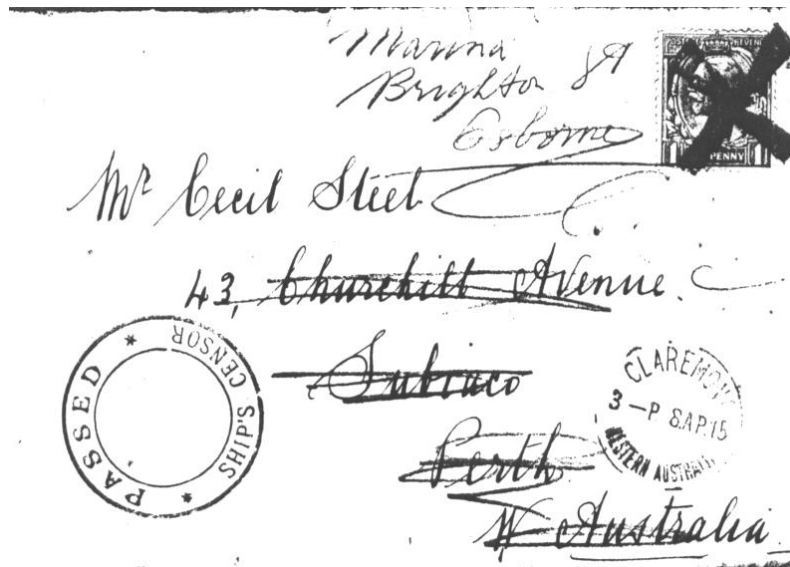 Marina
Brighton St
Osborne
PENNY
Mr Cecil Steet
43, Churchill Avenue.
Subiaco
Perth
W Australia
PASSED * SHIP'S CENSOR *
CLAREMONT
3 - P 8.AP.15
WESTERN AUSTRALIA